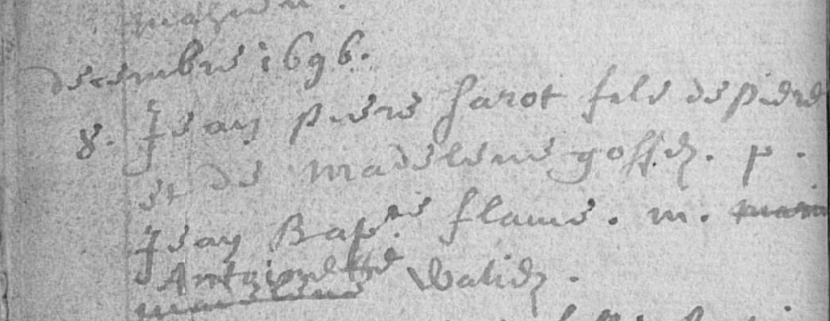 decembre 1696.
8. Jean piere harot fils de piere
et de madelene goffin. p.
Jean Bap.te flame. m.
Antoinette Walid.